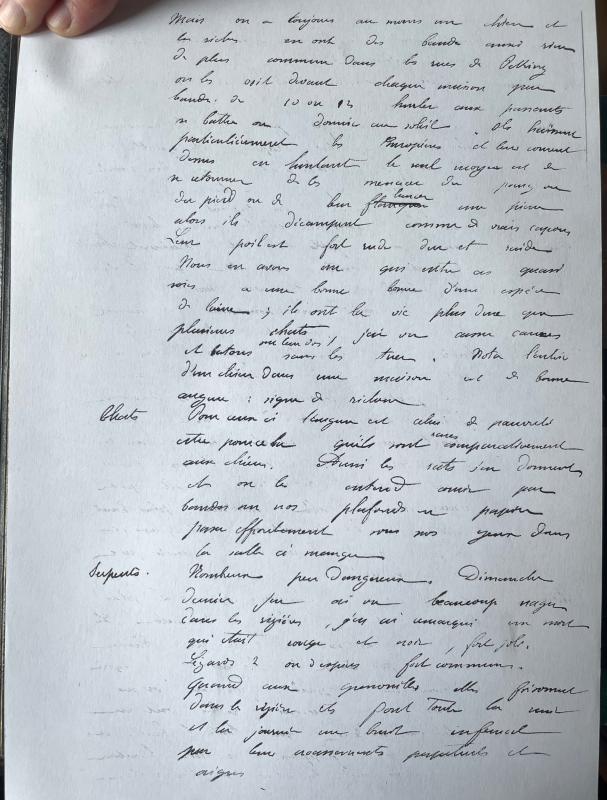 Mais on a toujours au moins un chien et
les riches en ont des bandes aussi rien
de plus commun dans les rues de
on les voit devant chaque maison par
bandes de 10 ou 12 hurler aux passants
se battre ou dormir au soleil. Ils haïssent
particulièrement les Européens et leur courent
dessus en hurlant le seul moyen est de
se retourner de les menacer du poing ou
du pied ou de leur lancer une pierre
alors ils décampent comme de vrais
Leur poil est fort rude dur et raide
Nous en avons un qui entre ces quasi
soies a une bonne bourre d'une espèce
de laine; ils ont la vie plus dure que
plusieurs chats, j'ai vu casser cannes
et batons sur leur dos! sans les tuer. Nota l'entrée
d'un chien dans une maison est de bonne
augure: signe de richesse
Chats Pour ceux ci l'augure est celui de pauvreté
peut-être pour cela qu'ils sont rares comparativement
aux chiens. Aussi les rats s'en donnent
et on les entend courir par
bandes sur nos plafonds en papier
passer effrontément sous nos yeux dans
la salle à manger
Serpents. Nombreux peu dangereux. Dimanche
dernier j'en ai vu beaucoup nager
dans les rizières, j'en ai remarqué un mort
qui était rouge et noir, fort joli.
Lézards 2 ou 3 espèces fort communes.
Quand aux grenouilles elles foisonnent
dans les rizières et font toute la nuit
et la journée un bruit infernal
par leurs coassements perpétuels et
aigus